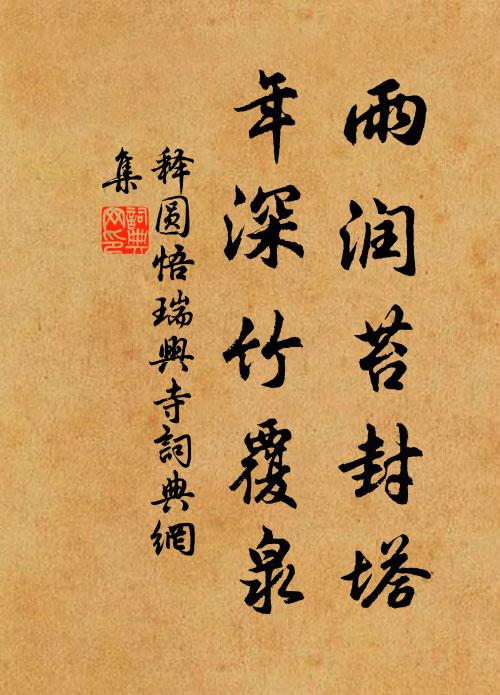 雨润苔封塔
年深竹覆泉
释圆悟瑞興寺詞典網
集
詞典
网印